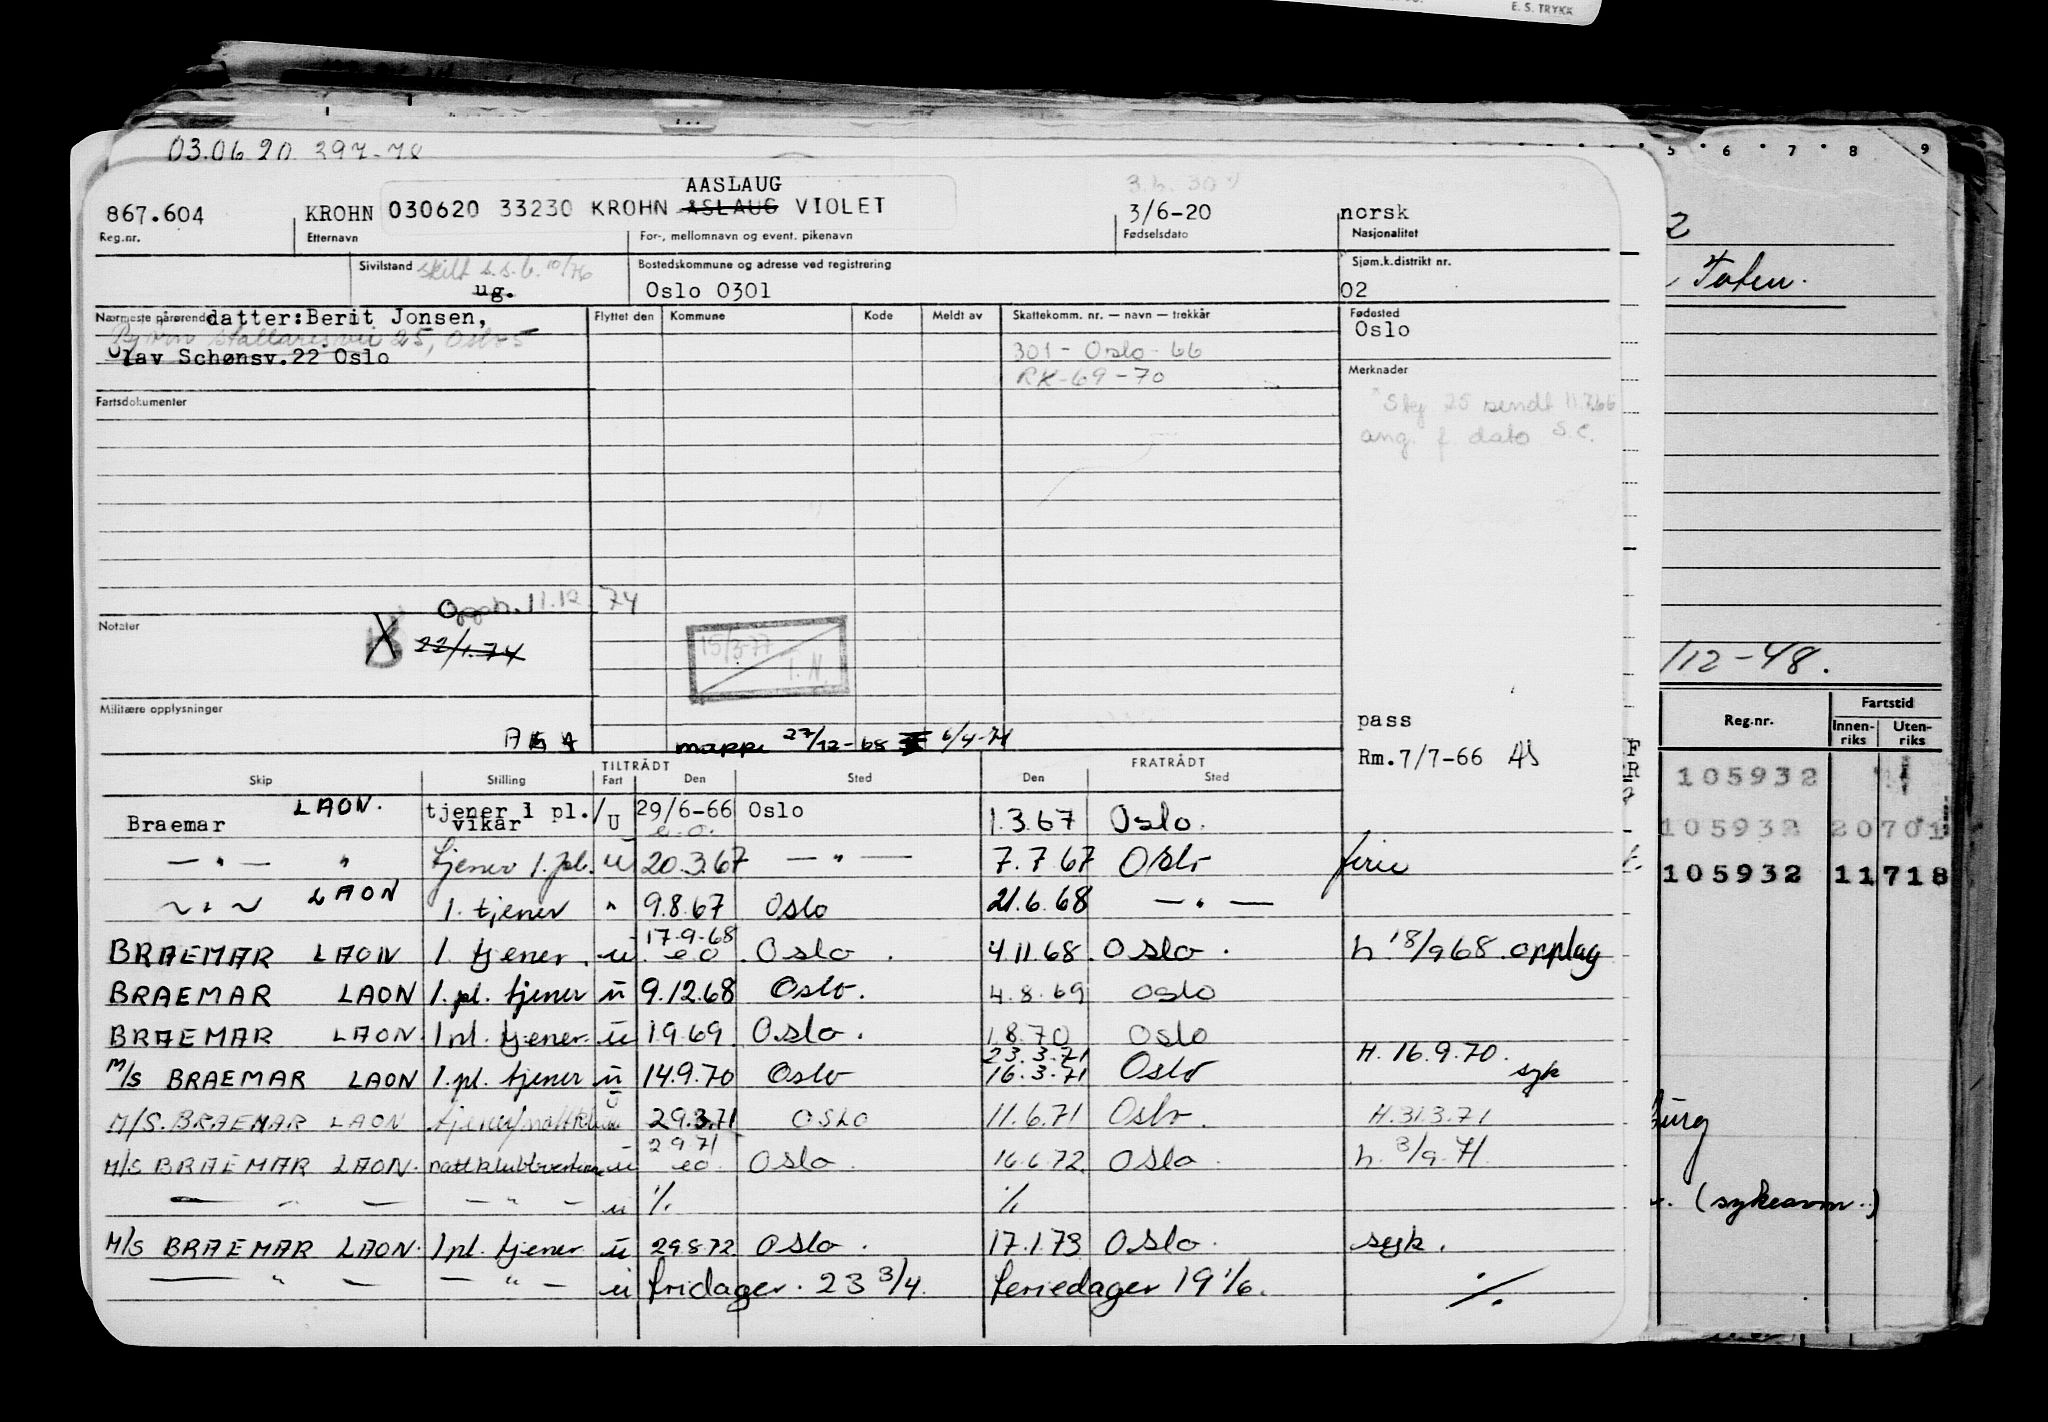 E. S. TRYKK
03.06 20. 297-78
AASLAUG
867.604 KROHN 030620 33230 KROHN ASLAUG VIOLET 3/6-20 norsk
Reg.nr. Etternavn For-, mellomnavn og event. pikenavn Fødselsdato Nasjonalitet
Sivilstand skilt s.s.b. 10/76 Bostedskommune og adresse ved registrering Sjøm.k.distrikt nr.
ug. Oslo 0301 02
Nærmeste pårørende datter:Berit Jonsen, Flyttet den Kommune Kode Meldt av Skattekomm. nr. — navn — trekkår Fødested
Bjørn Stallaresvei 25, Oslo 5 Oslo
Olav Schønsv.22 Oslo 301 - Oslo - 66
RK-69-70 Merknader
Fartsdokumenter Skj 25 sendt 11.7.66
ang. f dato S.C.
Oppb. 11.12.74
Notater 22/1.74 15/3-77 I.N.
Militære opplysninger
pass
mappe 27/12-68 6/4-71
Rm.7/7-66 AS
TILTRÅDT FRATRÅDT
Skip Stilling Fart Den Sted Den Sted
Braemar LAON. tjener 1 pl./ vikar U 29/6-66 e.o. Oslo 1.3.67 Oslo.
— " — " tjener 1.pl. u 20.3.67 — " — 7.7.67 Oslo ferie
— " — LAON 1. tjener " 9.8.67 Oslo 21.6.68 — " —
BRAEMAR LAON 1. tjener. u 17.9.68 eo Oslo. 4.11.68 Oslo. h 18/9 68. opplag
BRAEMAR LAON 1. pl. tjener u 9.12.68 Oslo. 4.8.69 Oslo
BRAEMAR LAON. 1 pl. tjener. u 1969 Oslo. 1.8.70 Oslo
M/S BRAEMAR LAON 1. pl. tjener u 14.9.70 Oslo 23.3.71 16.3.71 Oslo H. 16.9.70. syk
M/S. BRAEMAR LAON u 29.3.71 OSLO 11.6.71 Oslo. H.31.3.71
M/S BRAEMAR LAON. u 2 9.71 eo. Oslo 16.6.72 Oslo h. 3/9-71.
— " — — " — u ./. ./.
M/S BRAEMAR LAON. 1 pl. tjener u 29.8.72 Oslo. 17.1.73 Oslo. syk.
— " — — " — u fridager. 23 3/4. feriedager 19 1/6. ./.
5 6 7 8 9
2
Toten.
/12-48.
Reg.nr. Fartstid
Innen-riks Uten-riks
105932
105932 20701
105932 11718
burg
(sykeavm.)